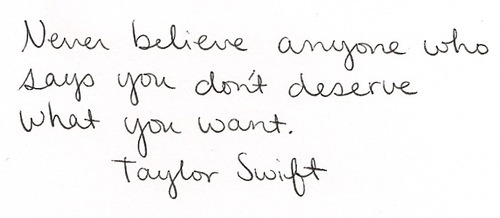 Never believe anyone who
says you don't deserve
what you want.
Taylor Swift